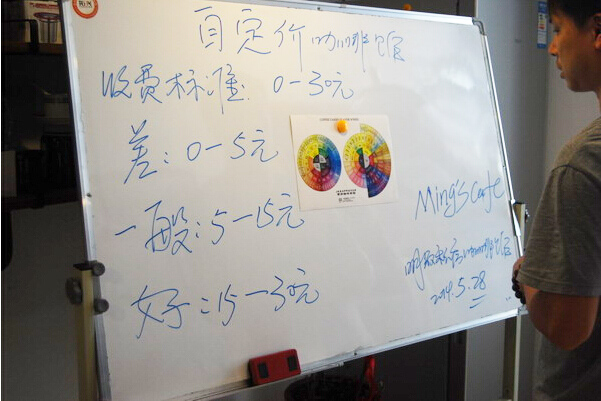 自定价咖啡馆
收费标准: 0-30元
差: 0-5元
一般: 5-15元
好: 15-30元
Ming's Cafe
咖啡馆
2014.5.28